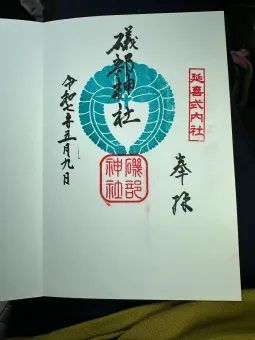 延喜式内社
奉拝
礒部神社
磯部神社
令和七年五月九日